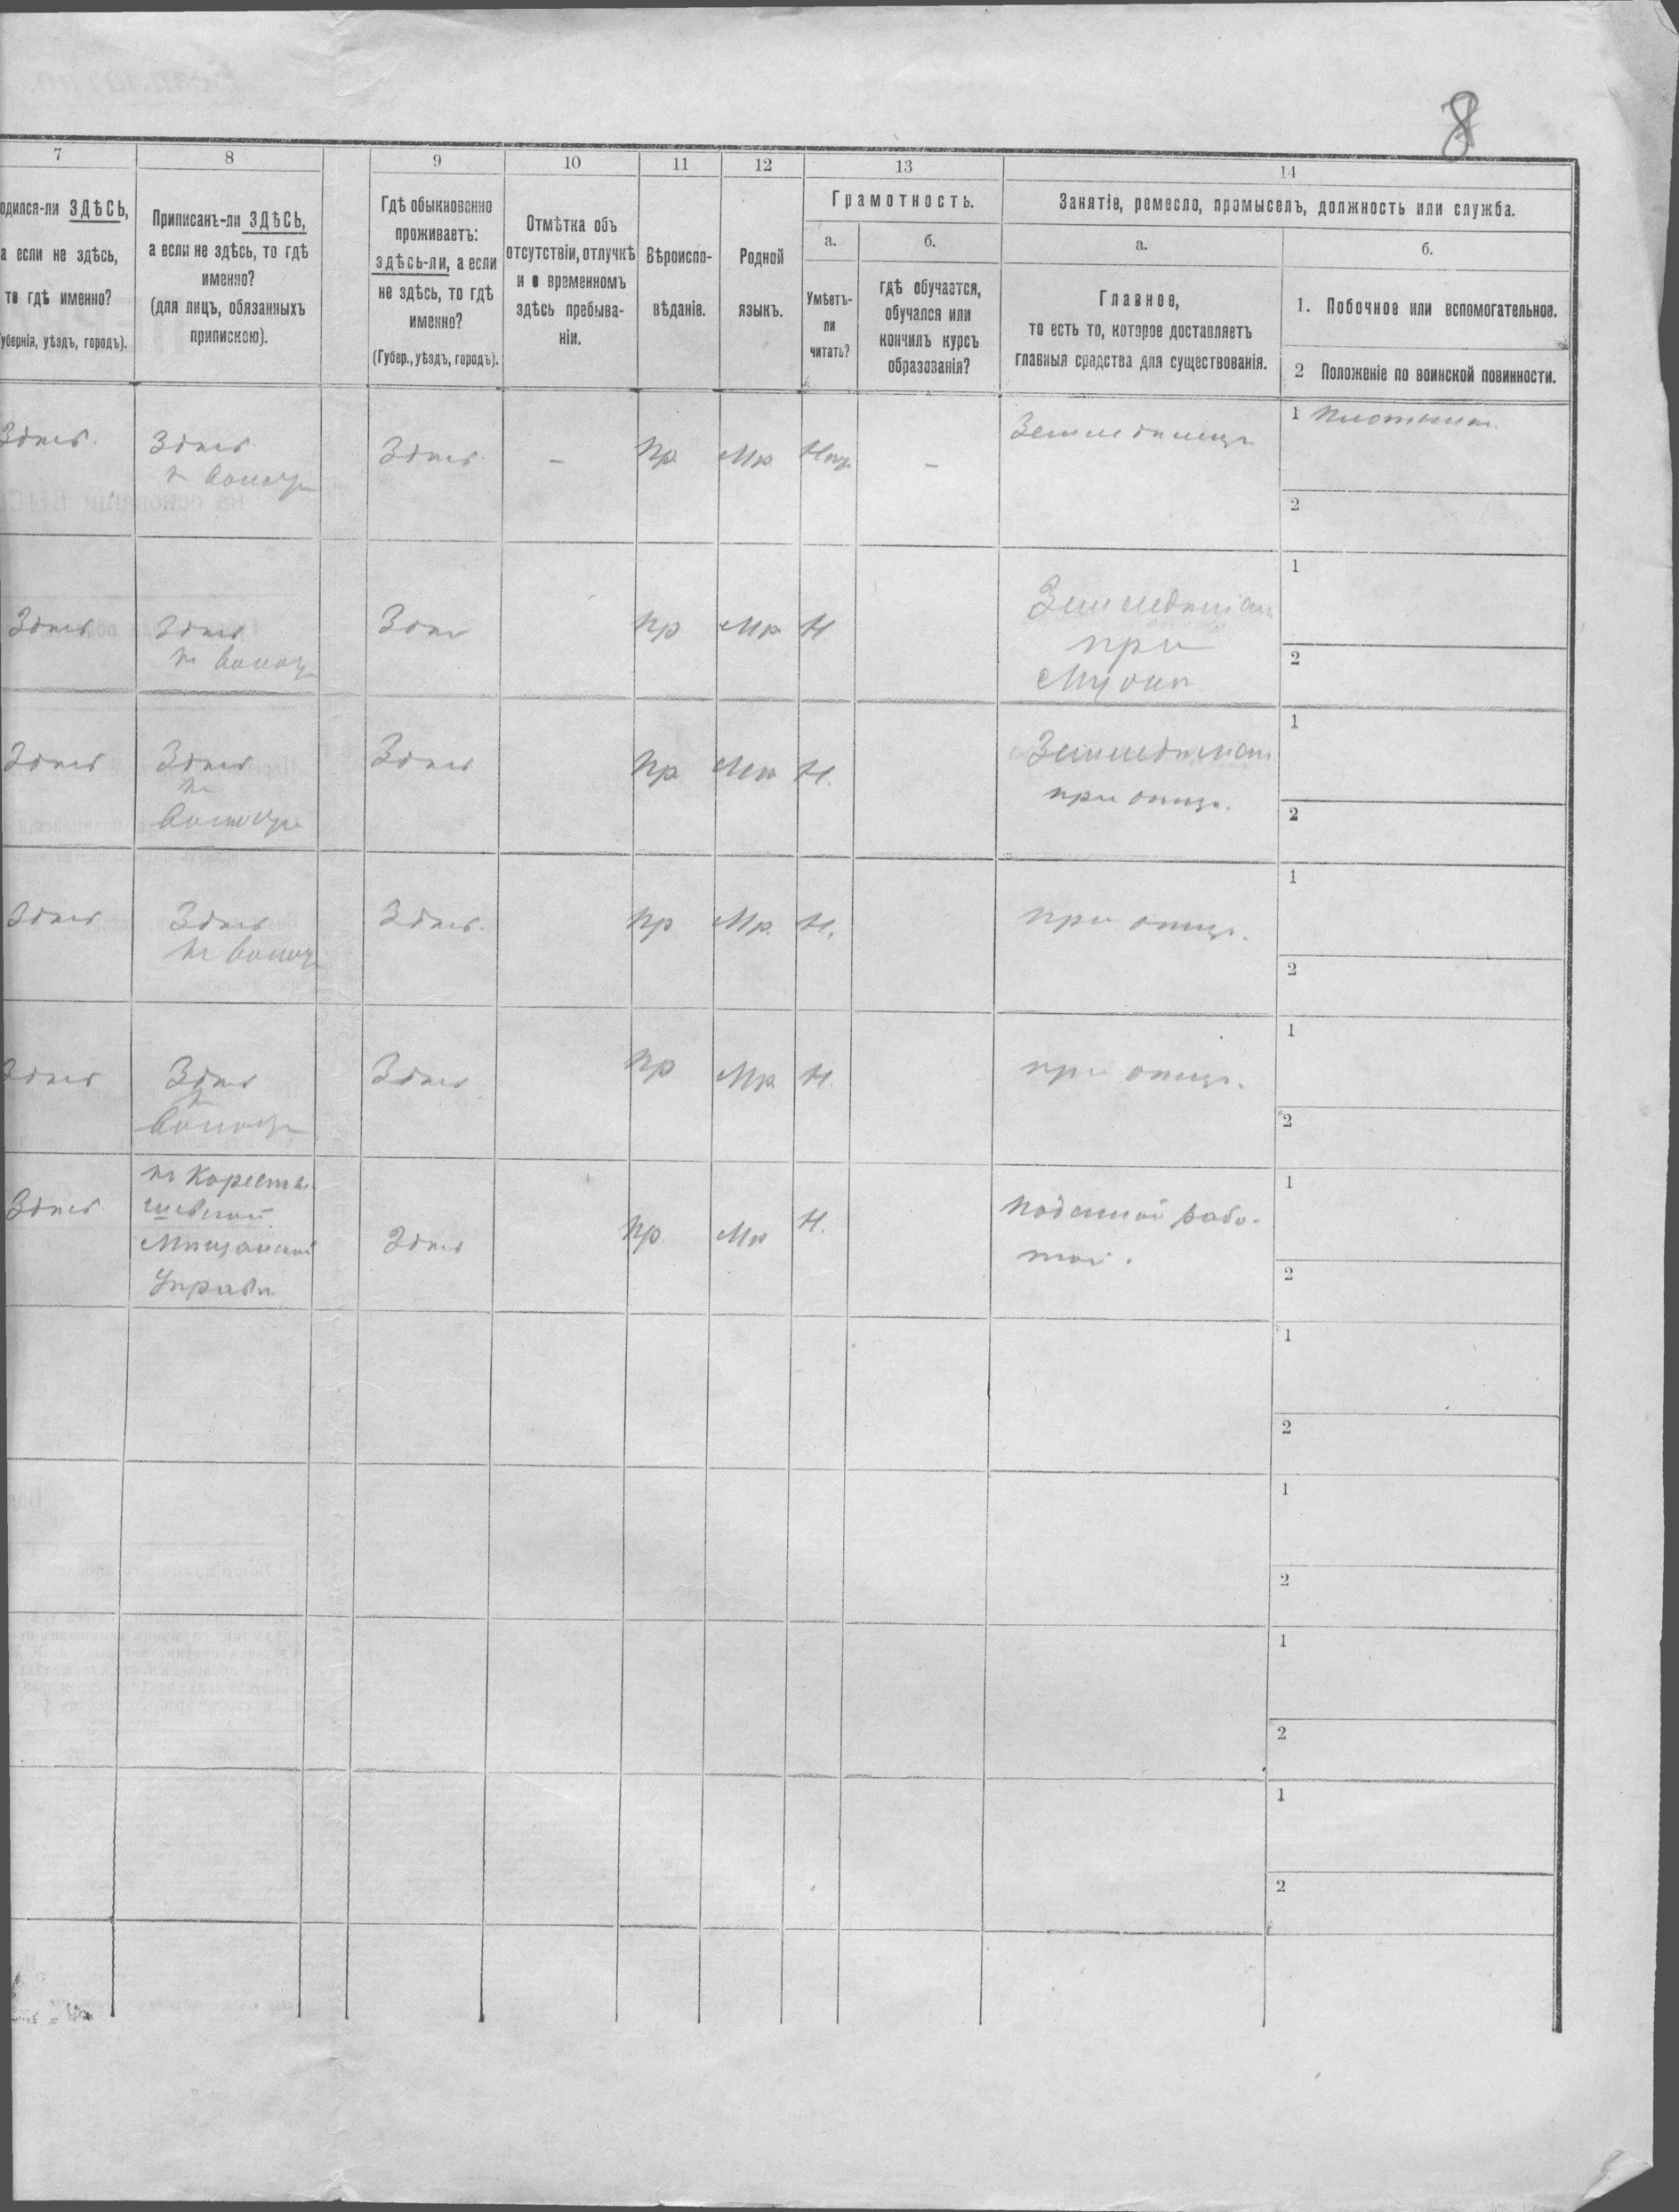 8
7
8
9
10
11
12
13
14
одился-ли ЗДѢСЬ,
а если не здѣсь,
то гдѣ именно?
убернія, уѣздъ, городъ).
Приписанъ-ли ЗДѢСЬ,
а если не здѣсь, то гдѣ
именно?
(для лицъ, обязанныхъ
припискою).
Гдѣ обыкновенно
проживаетъ:
здѣсь-ли, а если
не здѣсь, то гдѣ
именно?
(Губер., уѣздъ, городъ).
Отмѣтка объ
отсутствіи, отлучкѣ
и о временномъ
здѣсь пребыва-
ніи.
Вѣроиспо-
вѣданіе.
Родной
языкъ.
Грамотность.
а.
Умѣетъ-
ли
читать?
б.
гдѣ обучается,
обучался или
кончилъ курсъ
образованія?
Занятіе, ремесло, промыселъ, должность или служба.
а.
Главное,
то есть то, которое доставляетъ
главныя средства для существованія.
б.
1. Побочное или вспомогательное.
2 Положеніе по воинской повинности.
Здѣсь.
Здѣсь
Здѣсь
–
Пр.
Мр.
–
Земледѣлецъ
1 Плотникъ.
2
Здѣсь
Здѣсь
Пр
Мр.
Н
при
1
2
Здѣсь
Здѣсь
Здѣсь
Пр.
Мр
Н.
при отцѣ.
1
2
Здѣсь
Здѣсь
Здѣсь.
Пр
Мр.
Н.
при отцѣ.
1
2
Здѣсь
Здѣсь
Здѣсь
Пр
Мр.
Н.
при отцѣ.
1
2
Здѣсь
Мѣщанской
Управѣ
Здѣсь
Пр.
Мр
Н.
рабо-
той.
1
2
1
2
1
2
1
2
1
2